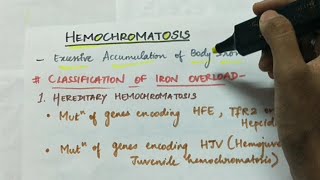 HEMOCHROMATOSIS
- Excessive Accumulation of Body Iron
# CLASSIFICATION OF IRON OVERLOAD-
1. HEREDITARY HEMOCHROMATOSIS
• Mutⁿ of genes encoding HFE, TfR2 or
Hepcid
• Mutⁿ of genes encoding HJV (Hemojuv
Juvenile hemochromatosis)